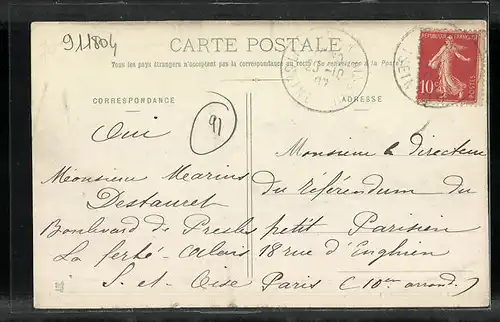 911804
CARTE POSTALE
Tous les pays étrangers n'acceptent pas la correspondance au recto (Se renseigner à la Poste)
REPUBLIQUE FRANÇAISE
10c
POSTES
CORRESPONDANCE
ADRESSE
91
Oui
Monsieur Marius
Destauret
Boulevard de Presles
La ferté-Alais
S. et Oise
Monsieur le Directeur
du référendum du
petit Parisien
18 rue d'Enghien
Paris (10em arrond.)